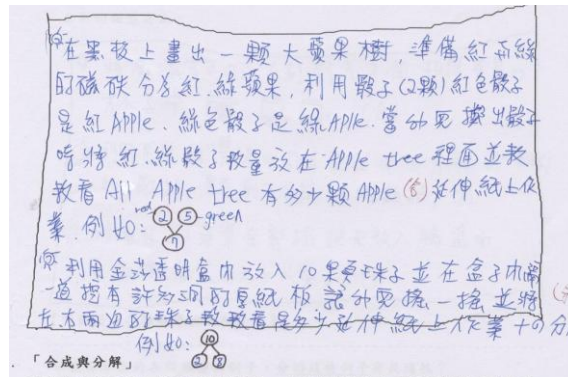 在黑板上畫出一顆大蘋果樹,準備紅和綠
的磁鉄分為紅.綠蘋果,利用骰子(2顆)紅色骰子
是紅Apple.綠色骰子是綠Apple.當幼兒擲出骰子
時將紅.綠骰子數量放在Apple tree裡面並數
數看All Apple tree有多少顆Apple延伸紙上作
業.例如: red 2 5 green
7
利用金莎透明盒巾放入10果子並在盒子巾
一道擋有許多洞的厚紙板請幼兒搖一搖並將
左右兩边的珠子數數看是多少延伸紙上作業十の分
例如: 10
2 8
「合成與分解」